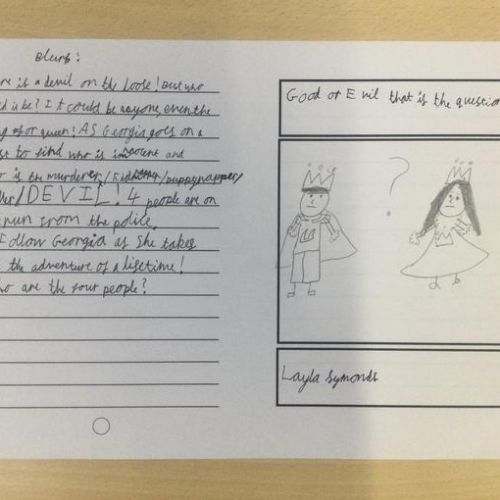 Blurb:
re is a devil on the loose! But who
d it be? It could be anyone, even the
g or queen! AS Georgia goes on a
st to find who is inocent and
o is the murderer/kidnapper/puppynapper/
ller/DEVIL! 4 people are on
run from the police.
Follow Georgia as She takes
the adventure of a lifetime!
ho are the four people?
Good or Evil that is the question
?
Layla Symonds